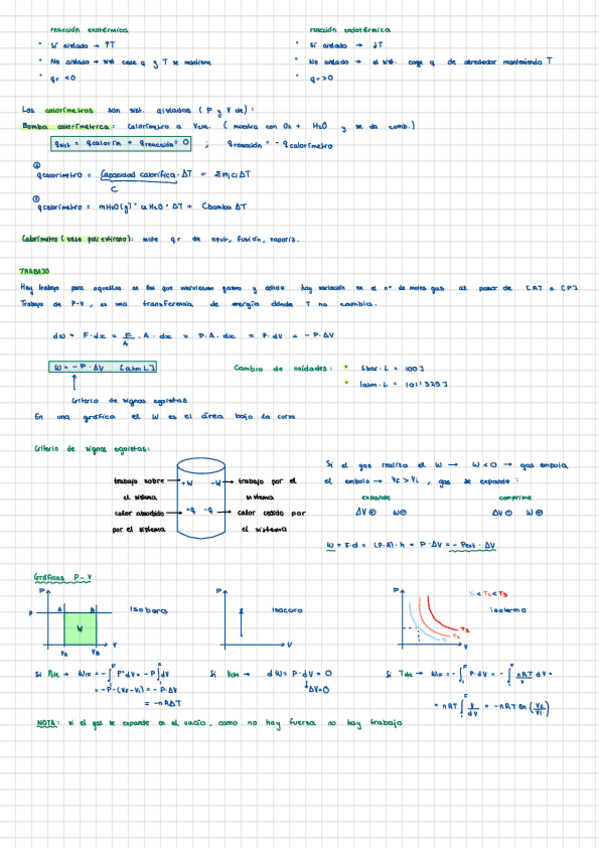 reacción exotérmica
• Si aislado → ↑T
• No aislado → sist cede q y T se mantiene
• qr < 0
reacción endotérmica
• Si aislado → ↓T
• No aislado → el sist. coge q de alrededor manteniendo T
• qr > 0
Los calorímetros son sist. aislados (P y V cte):
Bomba calorimétrica: Calorímetro a Vcte. (muestra con O2 + H2O y se da comb.)
qsist = qcalorim + qreacción = 0 ; qreacción = - qcalorímetro
① qcalorímetro = Capacidad calorífica · ΔT = Σmi ci ΔT
C
② qcalorímetro = mH2O(g) · ceH2O · ΔT + Cbomba ΔT
Calorímetro (vaso poliestireno): mide qr de neutr, fusión, vaporiz.
TRABAJO
Hay trabajo para aquellas en las que intervienen gases y donde hay variación en el nº de moles gas al pasar de [R] a [P]
Trabajo de P-V, es una transferencia de energía dónde T no cambia.
dw = F·dx = F/A · A · dx = P·A·dx = P·dV = -P·ΔV
W = -P·ΔV [atm L]
Criterio de signos egoistas
Cambio de unidades: • 1bar·L = 100J
• 1atm·L = 101'325J
En una gráfica el W es el área bajo la curva
Criterio de signos egoistas:
trabajo sobre el sistema
+W -W
trabajo por el sistema
calor absorbido por el sistema
+q -q
calor cedido por el sistema
Si el gas realiza el W → W<0 → gas empuja
el embolo → Vf > Vi, gas se expande:
expande
ΔV⊕ W⊖
comprime
ΔV⊖ W⊕
W = F·d = (P·A)·h = P·ΔV = -Pext·ΔV
Gráficas P-V
P A B W VA VB V
Isobara
P V
Isocora
P T1 < T2 < T3 T3 T2 T1 V
isoterma
Si Pcte → Wsis = -∫P·dV = -P∫dV
= -P·(Vf-Vi) = -P·ΔV
= -nRΔT
Si Vcte → dW = P·dV = 0
ΔV=0
Si Tcte → Wsis = -∫P·dV = -∫nRT/V dV =
= nRT∫V/dV = -nRT ln(Vf/Vi)
NOTA: si el gas se expande en el vacío, como no hay fuerza no hay trabajo